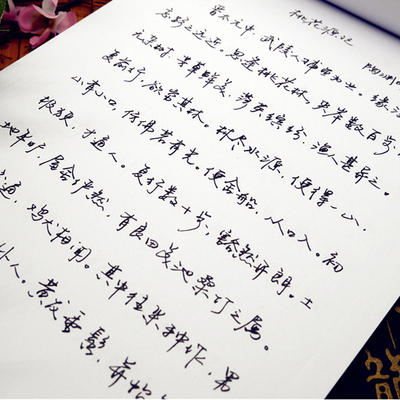 桃花源记
陶渊明
晋太元中，武陵人捕鱼为业。缘溪
忘路之远近。忽逢桃花林，夹岸数百步，
无杂树，芳草鲜美，落英缤纷，渔人甚异之。
复前行，欲穷其林。林尽水源，便得一山，
山有小口，仿佛若有光。便舍船，从口入。初
极狭，才通人。复行数十步，豁然开朗。土
地平旷，屋舍俨然，有良田美池桑竹之属。
交通，鸡犬相闻。其中往来种作，男
外人。黄发垂髫，并怡